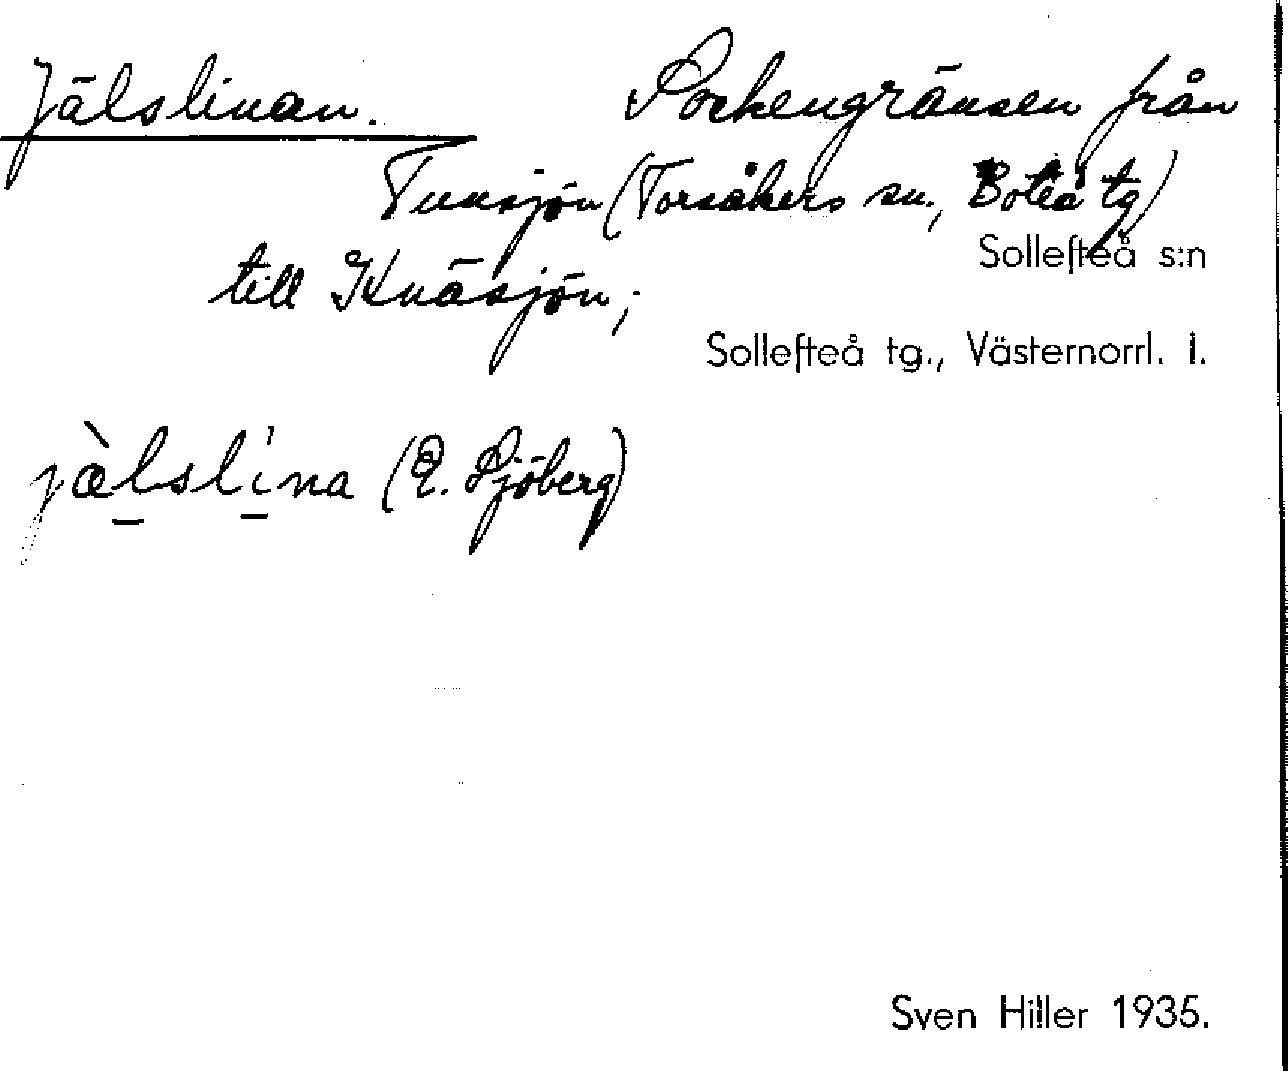 Jälslinan. Sockengränsen från
Tunsjön (Torsåkers sn., Boteå tg)
Sollefteå s:n
till Knäsjön,
Sollefteå tg., Västernorrl. l.
jæ̀lslìna (E. Sjöberg)
Sven Hiller 1935.